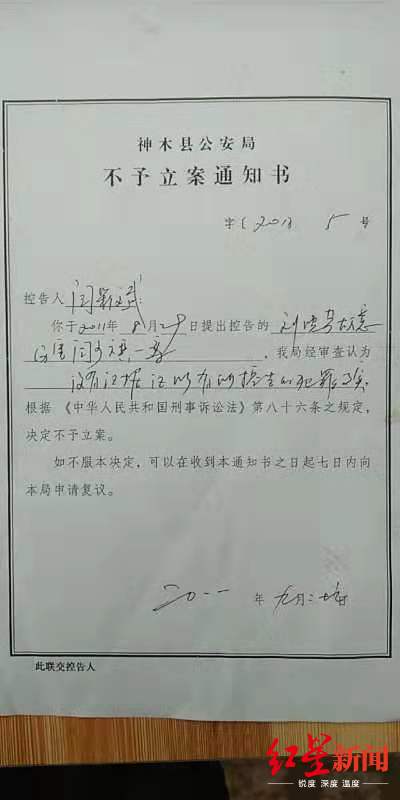 神木县公安局
不予立案通知书
字〔201 5 号
控告人 闫 斌：
你于2011年8月29日提出控告的 刘
伤害闫 一案，我局经审查认为
没有证据证明有你控告的犯罪事实
根据《中华人民共和国刑事诉讼法》第八十六条之规定，
决定不予立案。
如不服本决定，可以在收到本通知书之日起七日内向
本局申请复议。
二〇一一 年 九月二
此联交控告人
红星新闻
锐度 深度 温度